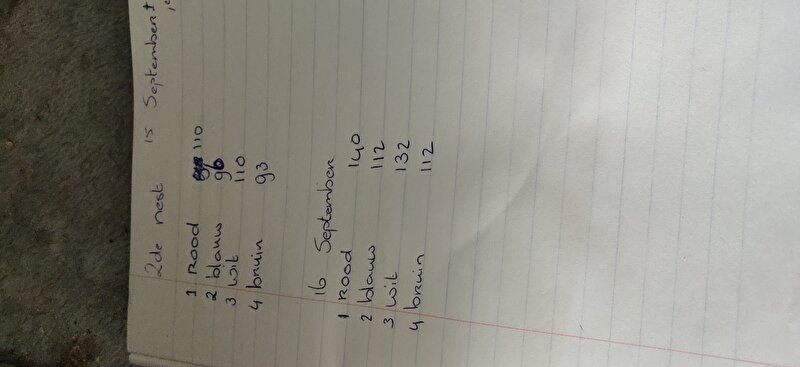 2de nest 15 September
1 rood 110
2 blauw 96
3 wit 110
4 bruin 93
16 September
1 rood 140
2 blauw 112
3 wit 132
4 bruin 112